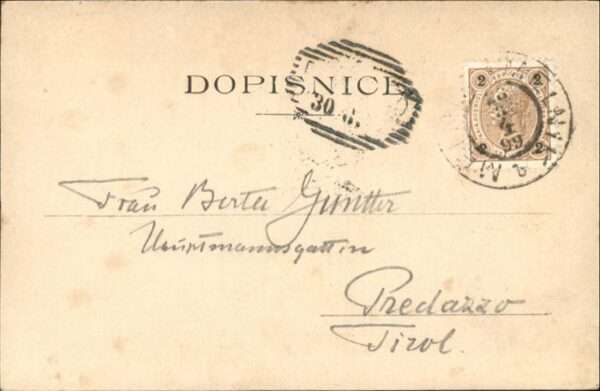 DOPISNICE
30
2 2
2 2
99
Frau Berta Gunther
Hauptmannsgattin
Predazzo
Tirol.